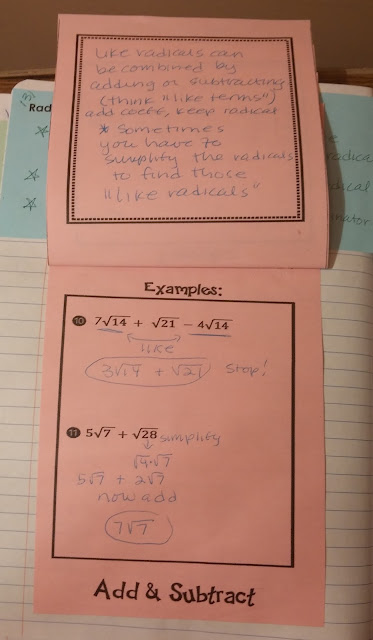 like radicals can
be combined by
adding or subtracting
(think "like terms")
add coeff, keep radical
* sometimes
you have to
simplify the radicals
to find those
"like radicals"
Rad
Examples:
10 7√14 + √21 − 4√14
like
3√14 + √21 stop!
11 5√7 + √28 simplify
√4·√7
5√7 + 2√7
now add
7√7
Add & Subtract